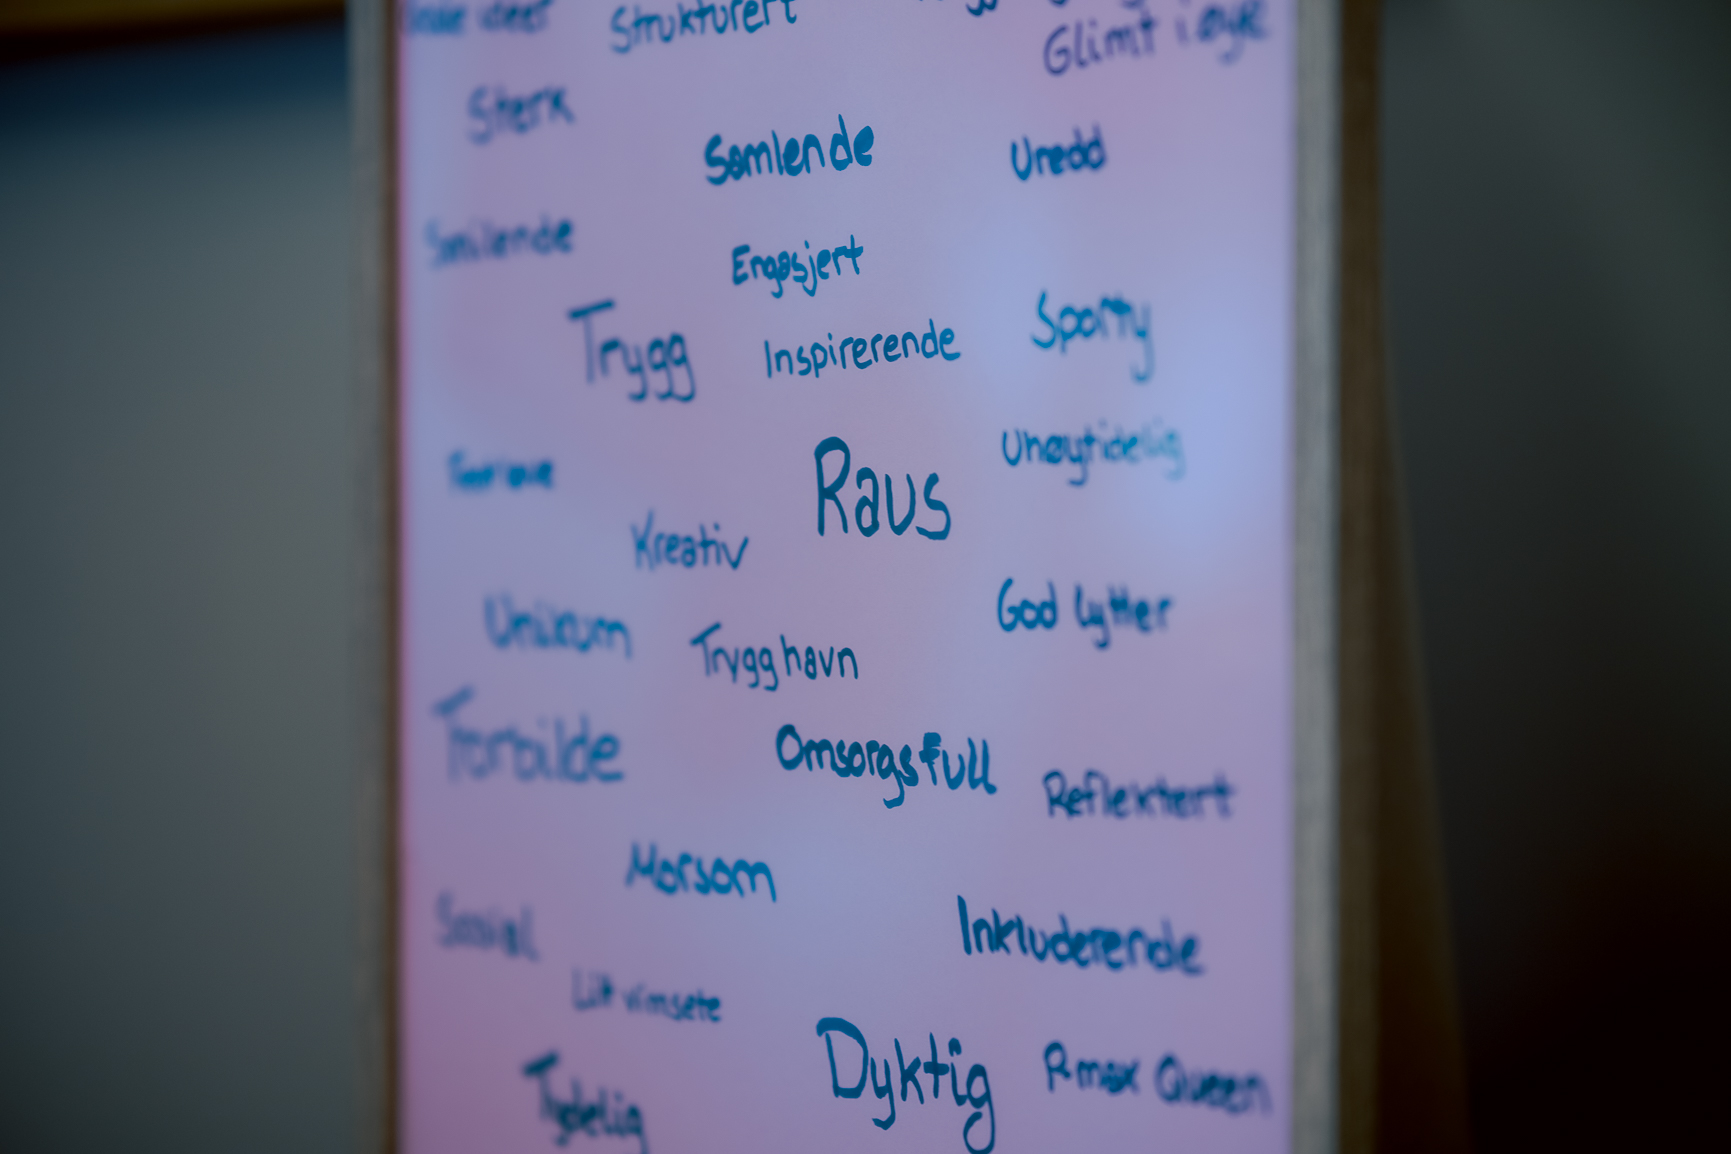 Strukturert
Glimt i øyet
Sterk
Samlende
Uredd
Smilende
Engasjert
Trygg
Inspirerende
Sporty
Raus
Uhøytidelig
Kreativ
Unikum
Trygg havn
God lytter
Forbilde
Omsorgsfull
Reflektert
Morsom
Sosial
Inkluderende
Litt vimsete
Dyktig
Rmax Queen
Tydelig